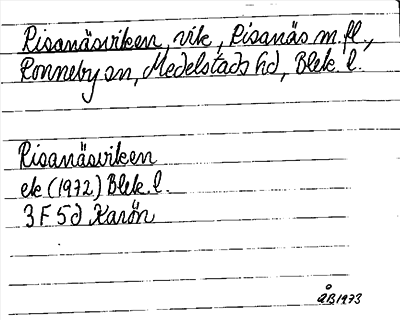 Risanäsviken, vik, Risanäs m.fl.,
Ronneby sn, Medelstads hd, Blek. l.
Risanäsviken
ek (1972) Blek. l.
3 F 5d Karön
ÅB 1973